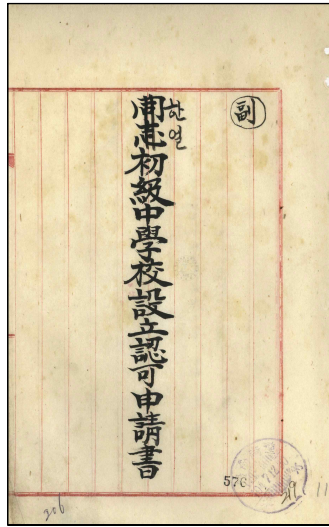 副
初級中學校設立認可申請書
576
206